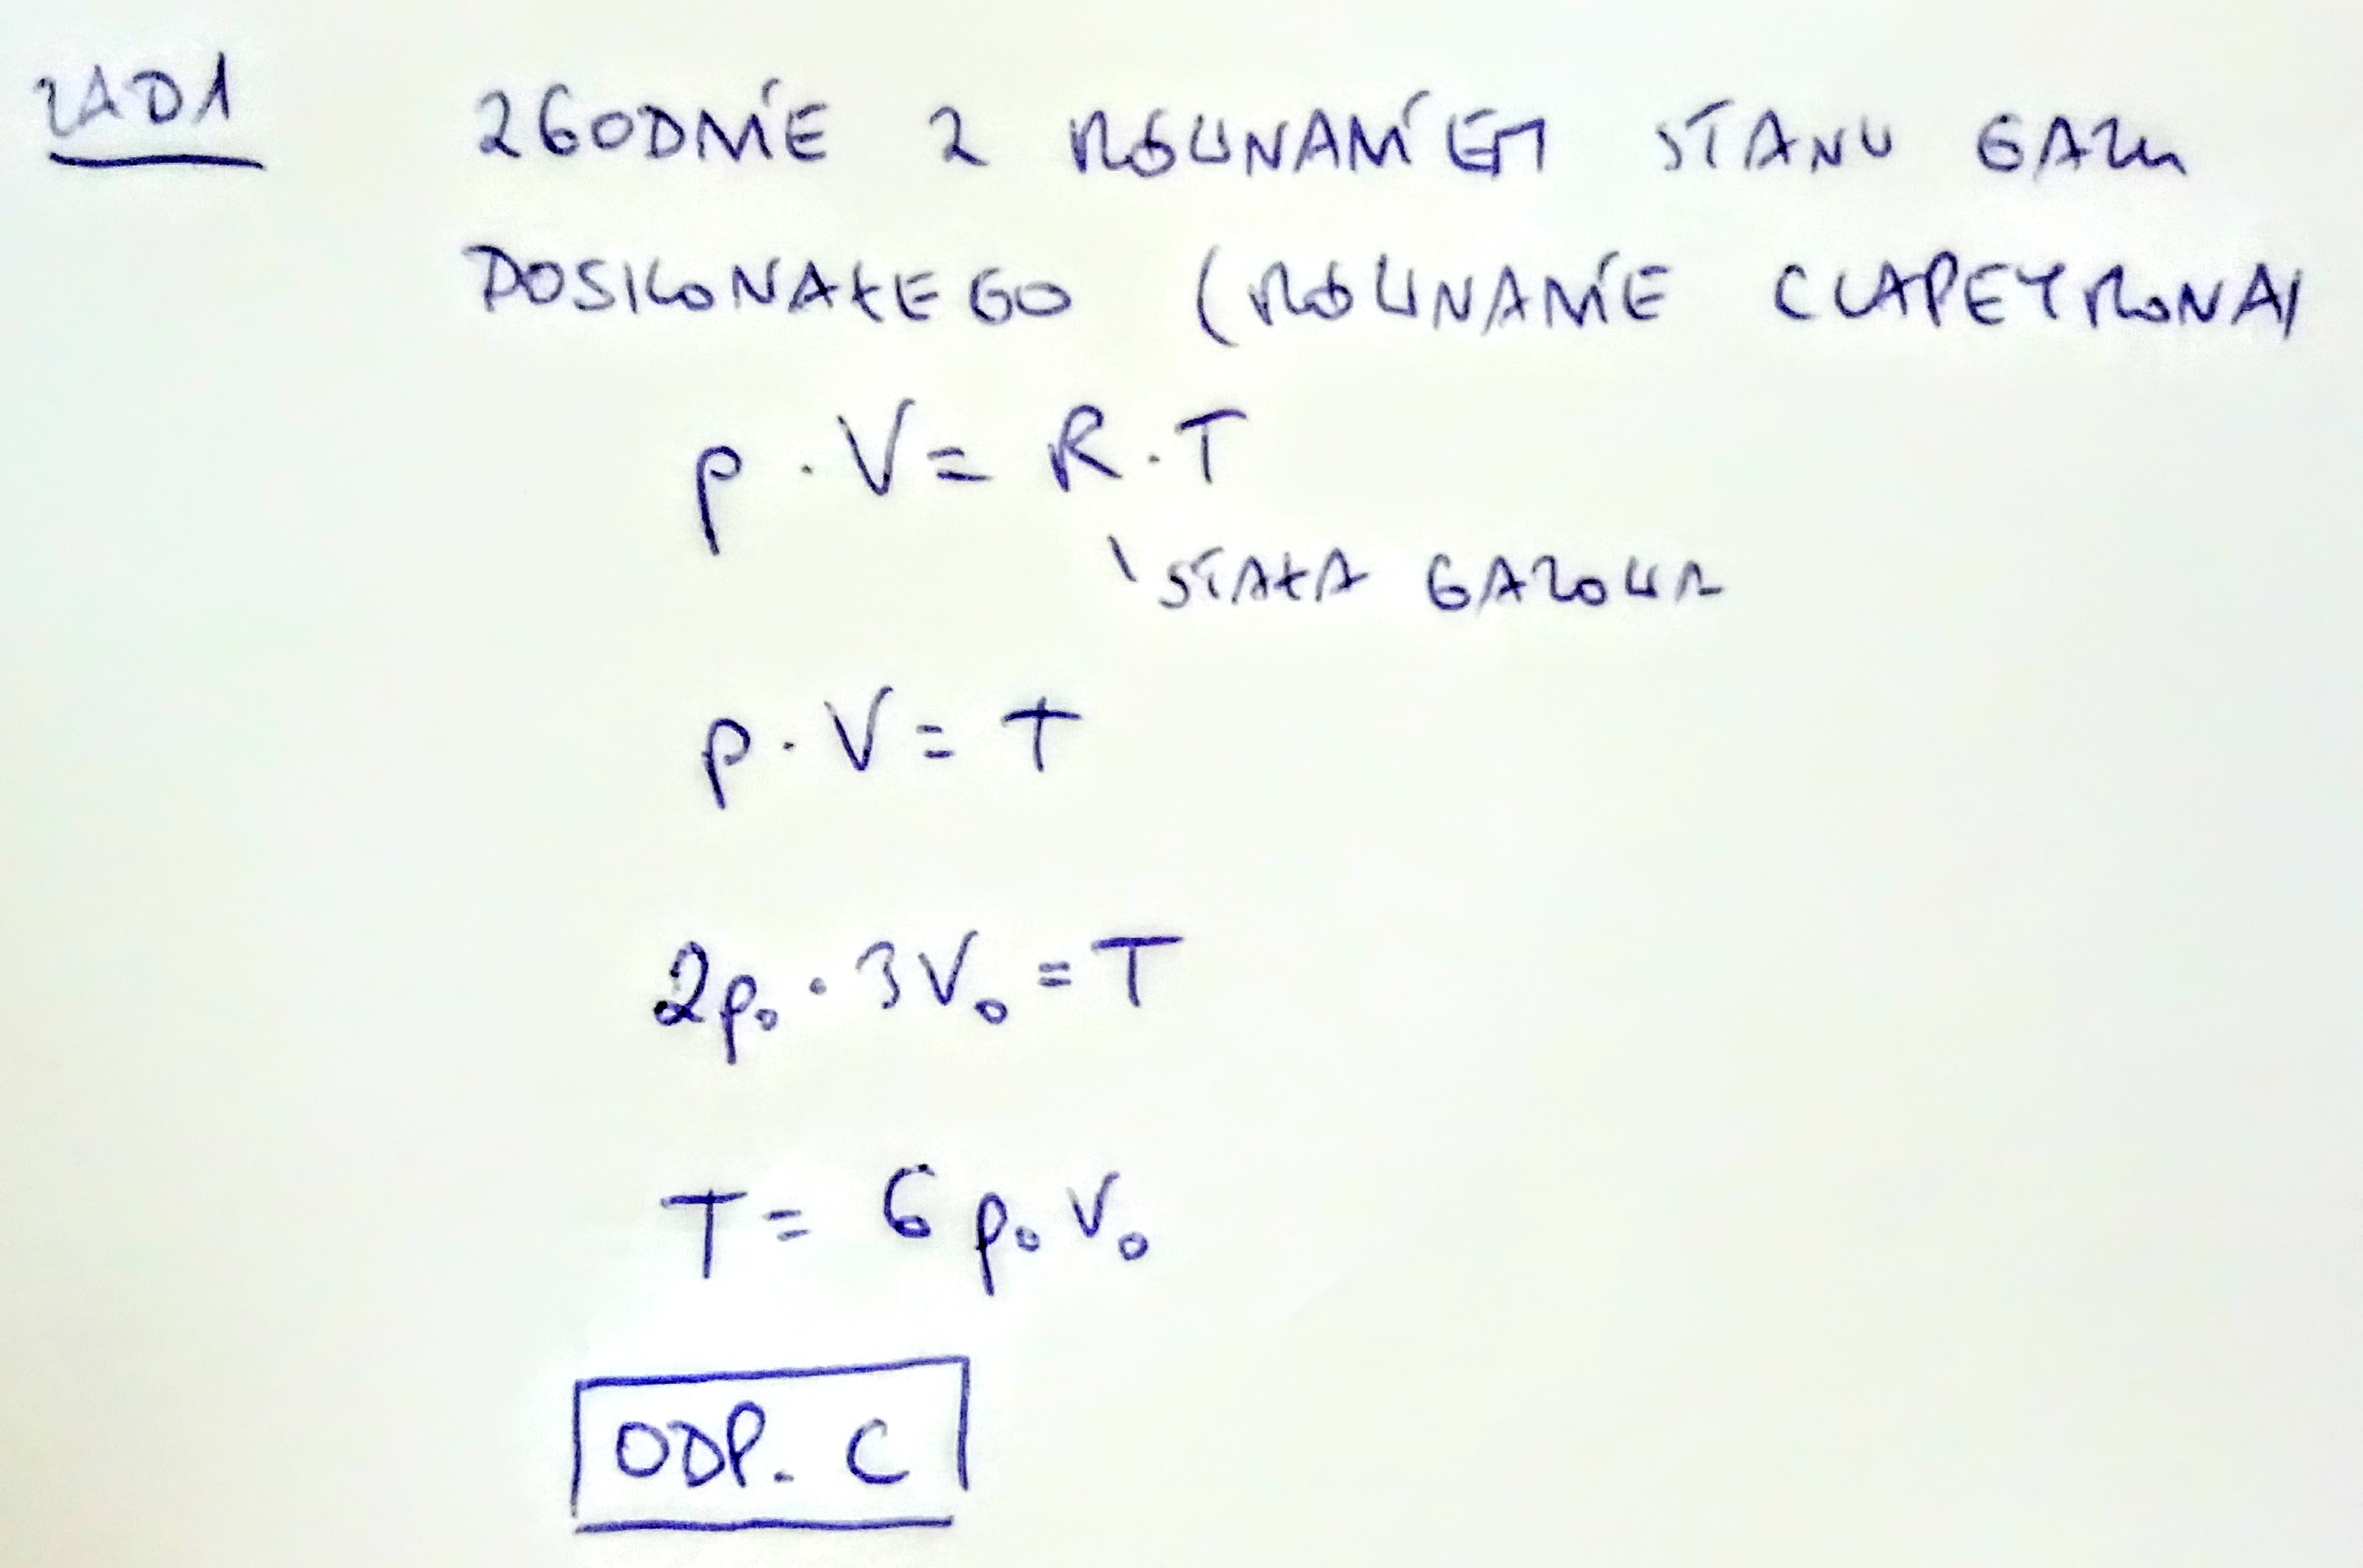 ZAD1
ZGODNIE Z RÓWNANIEM STANU GAZU
DOSKONAŁEGO (RÓWNANIE CLAPEYRONA)
p · V = R · T
\ STAŁA GAZOWA
p · V = T
2p₀ · 3V₀ = T
T = 6 p₀ V₀
ODP. C